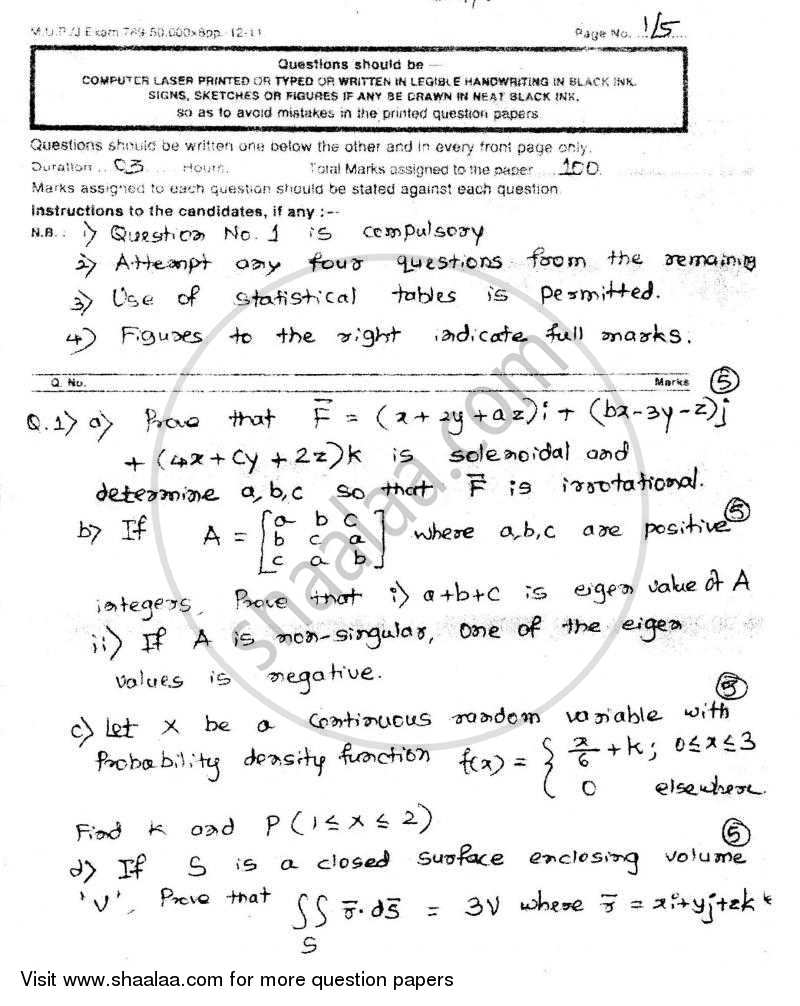 M.U.P./J Exam 789-50,000x8pp.-12-11 Page No. ... 1/5 ...
Questions should be —
COMPUTER LASER PRINTED OR TYPED OR WRITTEN IN LEGIBLE HANDWRITING IN BLACK INK.
SIGNS, SKETCHES OR FIGURES IF ANY BE DRAWN IN NEAT BLACK INK.
so as to avoid mistakes in the printed question papers
Questions should be written one below the other and in every front page only.
Duration .. 03 .... Hours. Total Marks assigned to the paper .... 100
Marks assigned to each question should be stated against each question.
Instructions to the candidates, if any :--
N.B. : 1) Question No. 1 is compulsory
2) Attempt any four questions from the remaining
3) Use of statistical tables is permitted.
4) Figures to the right indicate full marks.
Q. No. Marks (5)
Q.1) a) Prove that F̅ = (x + 2y + az)i + (bx - 3y - z)j
+ (4x + Cy + 2z)k is solenoidal and
determine a, b, c so that F̅ is irrotational.
b) If A = [a b c; b c a; c a b] where a, b, c are positive (5)
integers. Prove that i) a+b+c is eigen value of A
ii) If A is non-singular, one of the eigen
values is negative.
(5)
c) Let X be a continuous random variable with
Probability density function f(x) = { x/6 + k; 0≤x≤3
0 elsewhere.
Find k and P(1 ≤ x ≤ 2)
(5)
d) If S is a closed surface enclosing volume
'V', Prove that ∫∫S r̅ · ds̅ = 3V where r̅ = xi+yj+zk
shaalaa.com
Visit www.shaalaa.com for more question papers